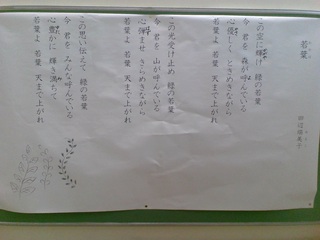 若葉
この空に輝け 緑の若葉
今 君を 森が呼んでいる
心 ときめきながら
若葉よ 若葉 天まで上がれ
この光受け止め 緑の若葉
今 君を 山が呼んでいる
心弾ませ きらめきながら
若葉よ 若葉 天まで上がれ
この思い伝えて 緑の若葉
今 君を みんな呼んでいる
心豊かに 輝き満ちて
若葉よ 若葉 天まで上がれ